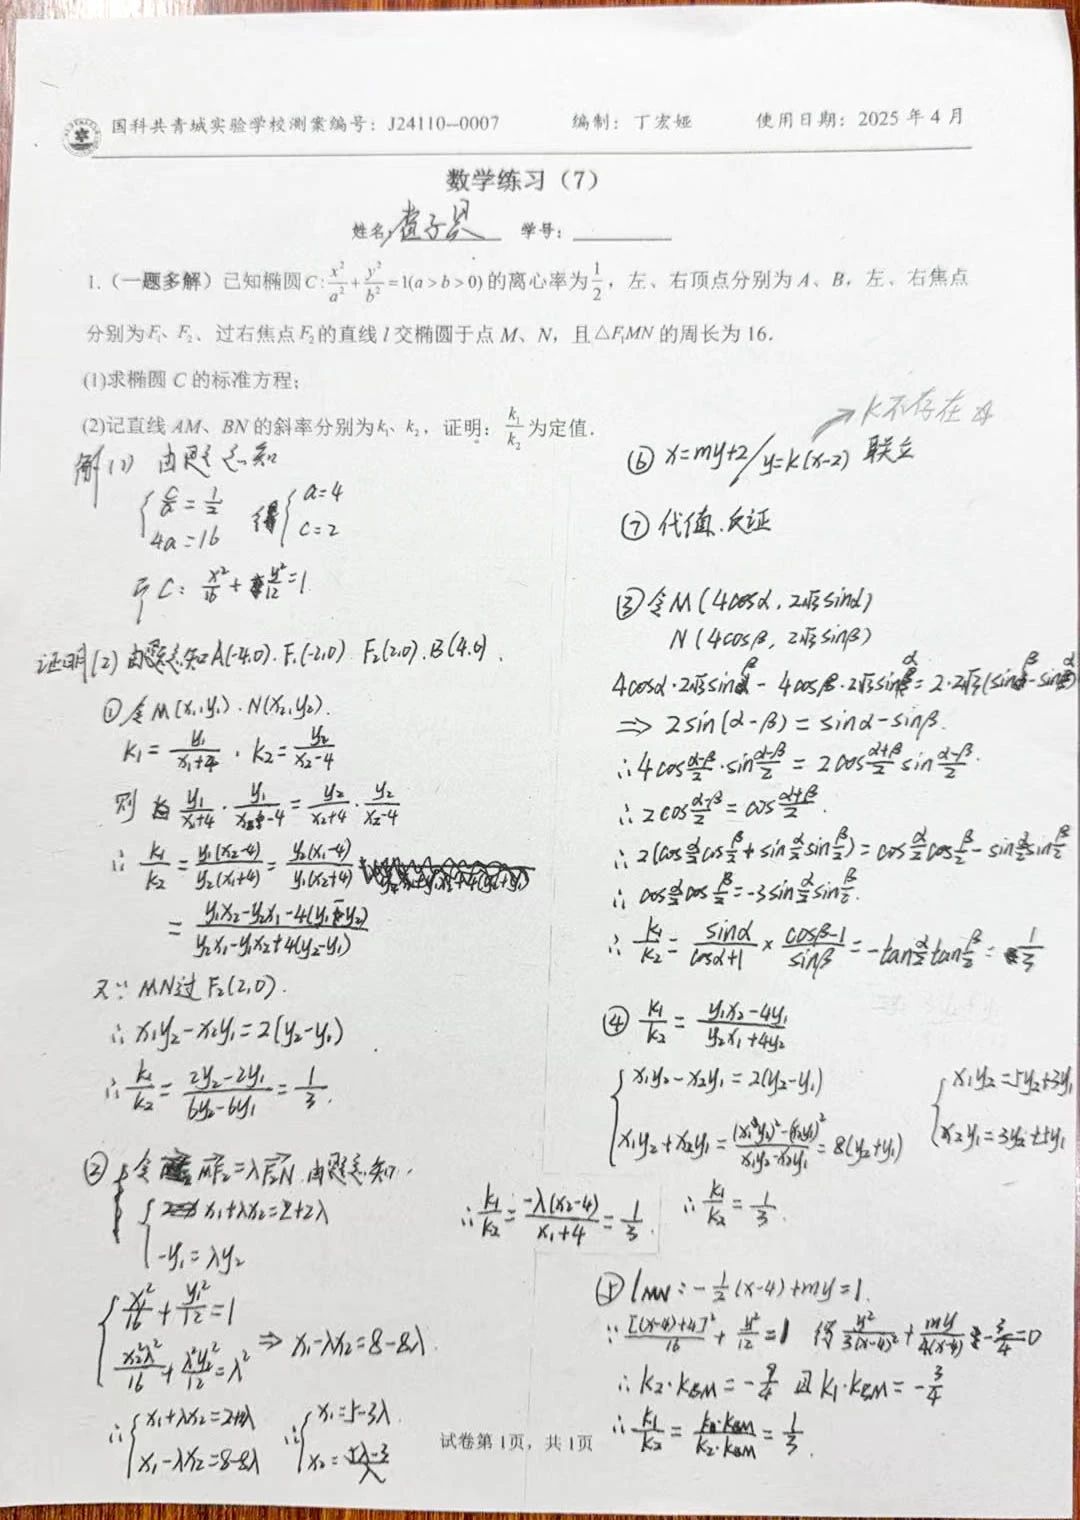 国科共青城实验学校测案编号：J24110-0007 编制：丁宏娅 使用日期：2025 年 4 月
数学练习（7）
姓名: 学号:
1.（一题多解）已知椭圆 C: x²/a² + y²/b² = 1(a > b > 0) 的离心率为 1/2，左、右顶点分别为 A、B，左、右焦点
分别为 F₁、F₂、过右焦点 F₂ 的直线 l 交椭圆于点 M、N，且 △F₁MN 的周长为 16.
(1)求椭圆 C 的标准方程；
(2)记直线 AM、BN 的斜率分别为 k₁、k₂，证明： k₁/k₂ 为定值.
解(1) 由题意知
{ c/a = 1/2 得 { a=4
4a=16 c=2
C: x²/16 + y²/12 = 1
证明(2) 由题意知 A(-4,0). F₁(-2,0) F₂(2,0). B(4,0).
① 令 M(x₁,y₁). N(x₂,y₂).
k₁ = y₁/(x₁+4) , k₂ = y₂/(x₂-4)
则 y₁/(x₁+4) · y₁/(x₁-4) = y₂/(x₂+4) · y₂/(x₂-4)
∴ k₁/k₂ = y₁(x₂-4)/y₂(x₁+4) = y₂(x₁-4)/y₁(x₂+4)
= (y₁x₂-y₂x₁-4(y₁-y₂))/(y₂x₁-y₁x₂+4(y₂-y₁))
又∵ MN过 F₂(2,0).
∴ x₁y₂-x₂y₁=2(y₂-y₁)
∴ k₁/k₂ = (2y₂-2y₁)/(6y₂-6y₁) = 1/3.
② 令 MF₂=λF₂N. 由题意知.
{ x₁+λx₂=2+2λ
-y₁=λy₂
{ x₁²/16 + y₁²/12 = 1
x₂²λ²/16 + λ²y₂²/12 = λ² ⇒ x₁-λx₂=8-8λ.
∴ { x₁+λx₂=2+2λ ∴ { x₁=5-3λ.
x₁-λx₂=8-8λ x₂=(5λ-3)/λ
∴ k₁/k₂ = -λ(x₂-4)/(x₁+4) = 1/3.
⑥ x=my+2/y=k(x-2) 联立
→ k不存在
⑦ 代值.反证
③ 令 M(4cosα, 2√3sinα)
N(4cosβ, 2√3sinβ)
4cosα·2√3sinβ - 4cosβ·2√3sinα = 2·2√3(sinβ-sinα)
⇒ 2sin(α-β) = sinα-sinβ.
∴ 4cos (α-β)/2 · sin (α-β)/2 = 2cos (α+β)/2 sin (α-β)/2.
∴ 2cos (α-β)/2 = cos (α+β)/2.
∴ 2(cos α/2 cos β/2 + sin α/2 sin β/2) = cos α/2 cos β/2 - sin α/2 sin β/2
∴ cos α/2 cos β/2 = -3sin α/2 sin β/2.
∴ k₁/k₂ = sinα/(cosα+1) × (cosβ-1)/sinβ = -tan α/2 tan β/2 = 1/3
④ k₁/k₂ = (y₁x₂-4y₁)/(y₂x₁+4y₂)
{ x₁y₂-x₂y₁=2(y₂-y₁) { x₁y₂=5y₂+3y₁
x₁y₂+x₂y₁ = ((x₁y₂)²-(x₂y₁)²)/(x₁y₂-x₂y₁) = 8(y₂+y₁) x₂y₁=3y₂+5y₁
∴ k₁/k₂ = 1/3.
⑤ l MN: -1/2(x-4)+my=1.
∵ [(x-4)+4]²/16 + y²/12 = 1 得 y²/3(x-4)² + my/4(x-4) - 3/4 = 0
∴ k₂·kBM = -9/4 且 k₁·kBM = -3/4
∴ k₁/k₂ = k₁·kBM/k₂·kBM = 1/3.
试卷第 1页，共 1页